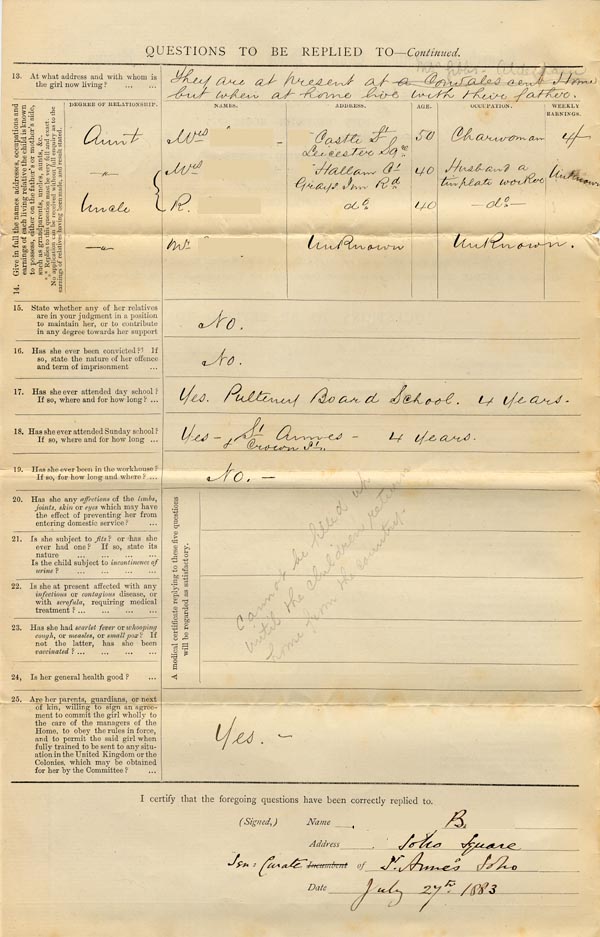 QUESTIONS TO BE REPLIED TO—Continued.
13. At what address and with whom is
the girl now living? ... ...
They are at present at a Convalescent Home
but when at home live with their father.
14. Give in full the names, addresses, occupations and
earnings of each living relative the child is known
to possess, either on the father's or mother's side,
such as grandparents, uncles, aunts, &c.
*** Replies to this question must be very full and exact.
No application can be received without full enquiry as to the
earnings of relatives having been made, and result stated.
DEGREE OF RELATIONSHIP. NAMES. ADDRESS. AGE. OCCUPATION. WEEKLY EARNINGS.
Aunt Mrs " - Castle St Leicester Sqre 50 Charwoman 4/
—"— Mrs Hallam Ct Grays Inn Rd 40 Husband a tinplate worker Unknown
Uncle R. do 40 —do—
—"— Mr " Unknown Unknown.
15. State whether any of her relatives
are in your judgment in a position
to maintain her, or to contribute
in any degree towards her support
No.
16. Has she ever been convicted? If
so, state the nature of her offence
and term of imprisonment ...
No.
17. Has she ever attended day school?
If so, where and for how long? ...
Yes. Pulteney Board School. 4 years.
18. Has she ever attended Sunday school?
If so, where and for how long ...
Yes - St Annes - 4 years.
Crown St.
19. Has she ever been in the workhouse?
If so, for how long and where? ...
No. —
20. Has she any affections of the limbs,
joints, skin or eyes which may have
the effect of preventing her from
entering domestic service? ...
21. Is she subject to fits? or has she
ever had one? If so, state its
nature ... ... ... ...
Is the child subject to incontinence of
urine? ... ... ... ...
22. Is she at present affected with any
infectious or contagious disease, or
with scrofula, requiring medical
treatment? ... ... ... ...
23. Has she had scarlet fever or whooping
cough, or measles, or small pox? If
not the latter, has she been
vaccinated? ... ... ... ...
24, Is her general health good? ...
A medical certificate replying to these five questions
will be regarded as satisfactory.
Cannot be filled up
until the children return
home from the country.
25. Are her parents, guardians, or next
of kin, willing to sign an agree-
ment to commit the girl wholly to
the care of the managers of the
Home, to obey the rules in force,
and to permit the said girl when
fully trained to be sent to any situ-
ation in the United Kingdom or the
Colonies, which may be obtained
for her by the Committee? ...
Yes. —
I certify that the foregoing questions have been correctly replied to.
(Signed,) Name B.
Address Soho Square
Sen: Curate Incumbent of St. Anne's Soho
Date July 27th 1883